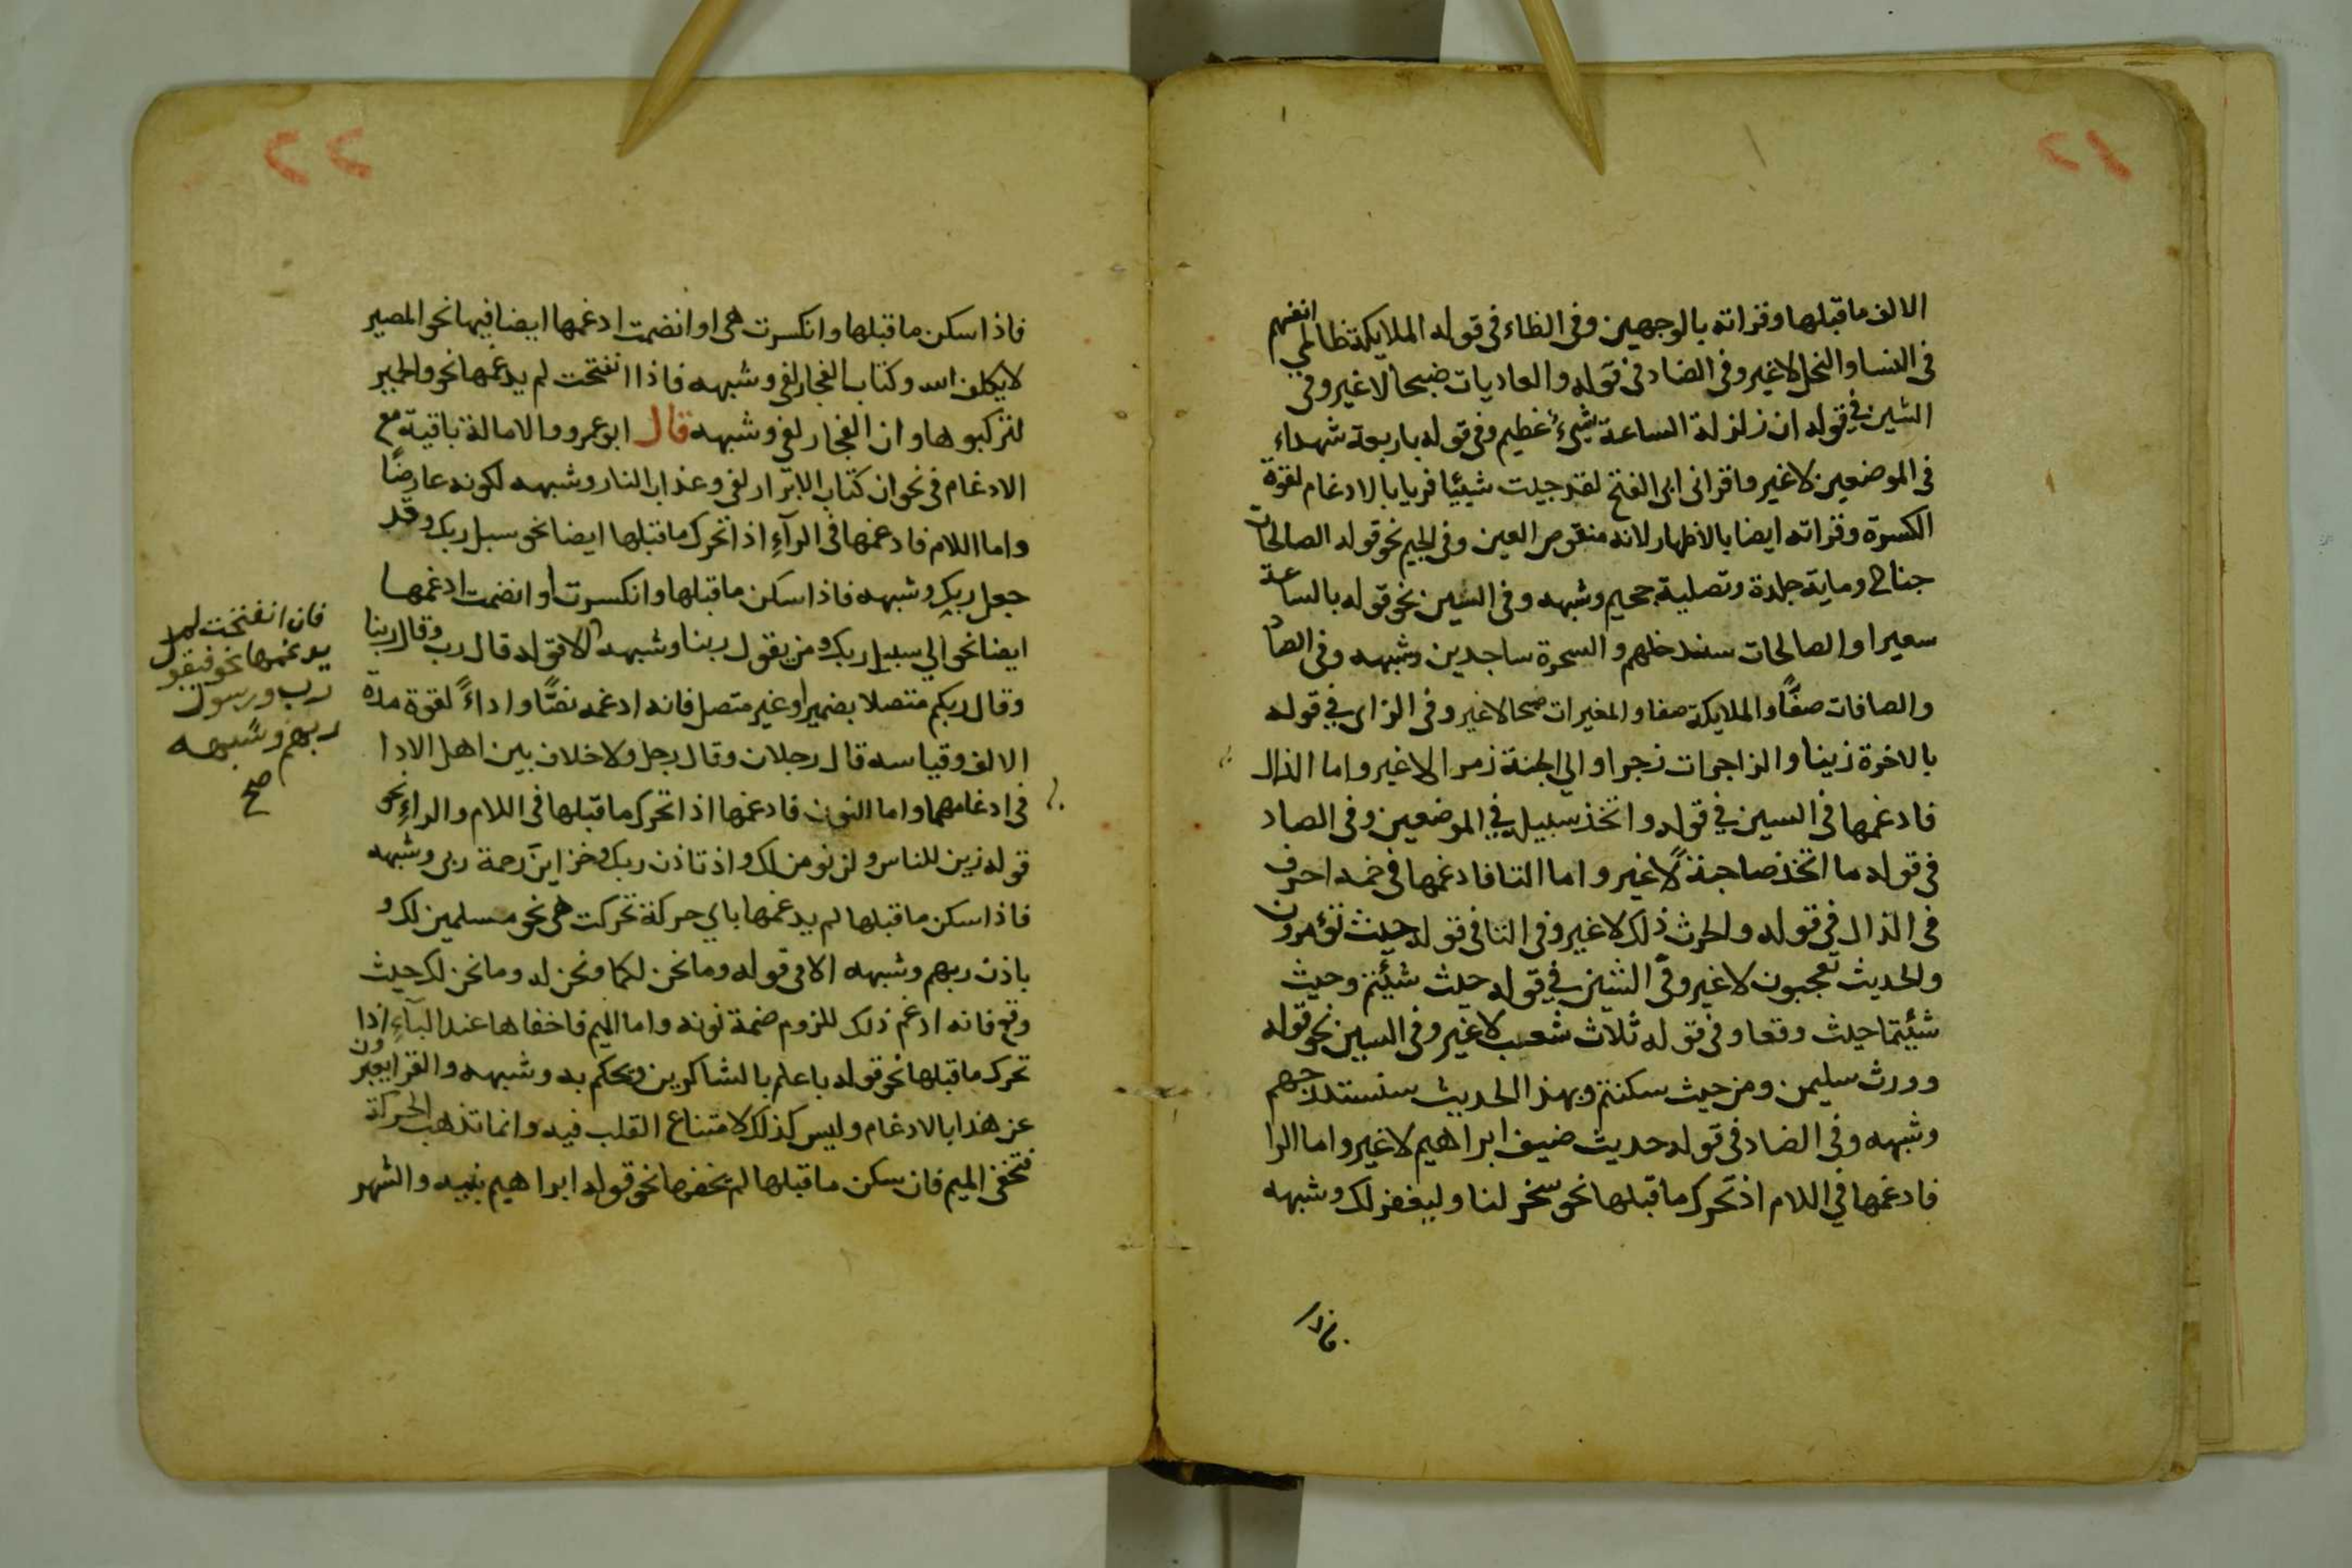 ٢١
الالف ما قبلها وقراته بالوجهين وفى الظاء فى قوله الملايكة ظالمي انفسهم
فى النسا والنحل لا غير وفى الضاد فى قوله والعاديات ضبحا لا غير وفى
الشين في قوله ان زلزلة الساعة شيء عظيم وفى قوله باربعة شهداء
فى الموضعين لا غير واقرانى ابى الفتح لقد جيت شيئا فريا بالادغام لقوة
الكسرة وقراته ايضا بالاظهار لانه منقوص العين وفى الجيم نحو قوله الصالحات
جناح وماية جلدة وتصلية جحيم وشبهه وفى السين نحو قوله بالساعة
سعيرا والصالحات سندخلهم والسحرة ساجدين وشبهه وفى الصاد
والصافات صفًّا والملايكة صفا والمغيرات صبحا لا غير وفى الزاى في قوله
بالاخرة زينا والزاجرات زجرا والي الجنة زمرا لا غير واما الذال
فادغمها فى السين في قوله واتخذ سبيله في الموضعين وفى الصاد
فى قوله ما اتخذ صاحبة لا غير واما الثا فادغمها فى خمسة احرف
فى الذال فى قوله والحرث ذلك لا غير وفى التا فى قوله حيث تؤمرون
والحديث تعجبون لا غير وفى الشين في قوله حيث شئتم وحيث
شئتما حيث وقعا وفى قوله ثلاث شعب لا غير وفى السين نحو قوله
وورث سليمن ومن حيث سكنتم وبهذا الحديث سنستدرجهم
وشبهه وفى الضاد فى قوله حديث ضيف ابراهيم لا غير واما الرا
فادغمها في اللام اذ تحرك ما قبلها نحو سخر لنا وليغفر لك وشبهه
٢٢
فاذا سكن ما قبلها وانكسرت هى او انضمت ادغمها ايضا فيها نحو المصير
لا يكلف الله وكتاب الفجار لفى وشبهه فاذا انفتحت لم يدغمها نحو والحمير
لتركبوها وان الفجار لفى وشبهه قال ابو عمرو والامالة باقية مع
الادغام فى نحو ان كتاب الابرار لفى وعذاب النار وشبهه لكونه عارضًا
واما اللام فادغمها فى الرآءِ اذا تحرك ما قبلها ايضا نحو سبل ربك وقد
جعل ربك وشبهه فاذا سكن ما قبلها وانكسرت او انضمت ادغمها
ايضا نحو الي سبيل ربك ومن يقول ربنا وشبهه الا قوله قال رب وقال ربنا
وقال ربكم متصلا بضمير او غير متصل فانه ادغمه نصًّا واداءً لقوة مدة
الالف وقياسه قال رجلان وقال رجل ولا خلاف بين اهل الادا
فى ادغامهما واما النون فادغمها اذا تحرك ما قبلها فى اللام والراءِ نحو
قوله زين للناس ولن نومن لك واذ تاذن ربك وخزاين رحمة ربى وشبهه
فاذا سكن ما قبلها لم يدغمها باي حركة تحركت هى نحو مسلمين لك و
باذن ربهم وشبهه الا فى قوله وما نحن لكما ونحن له وما نحن لك حيث
وقع فانه ادغم ذلك للزوم ضمة نونه واما الميم فاخفاها عند البآءِ اذا
تحرك ما قبلها نحو قوله باعلم بالشاكرين ويحكم به وشبهه والقرا يعبرون
عن هذا بالادغام وليس كذلك لامتناع القلب فيه وانما تذهب الحركة
فتخفى الميم فان سكن ما قبلها لم يخفها نحو قوله ابراهيم بنيه والشهر
فان انفتحت لم
يدغمها نحو فيقول
رب ورسول
ربهم وشبهه
صح